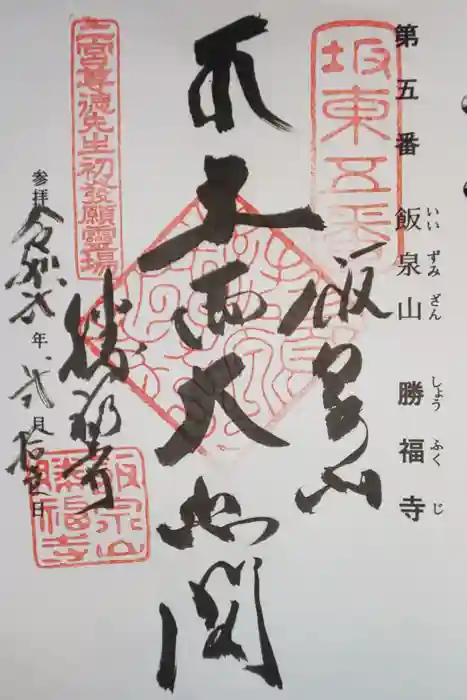 第五番 飯泉山 勝福寺
いい ずみ ざん しょう ふく じ
坂東五番
飯泉山
十一面大悲閣
勝福寺
二宮尊徳先生初發願靈場
参拝 令和弐年 弐月 日
飯泉山
勝福寺